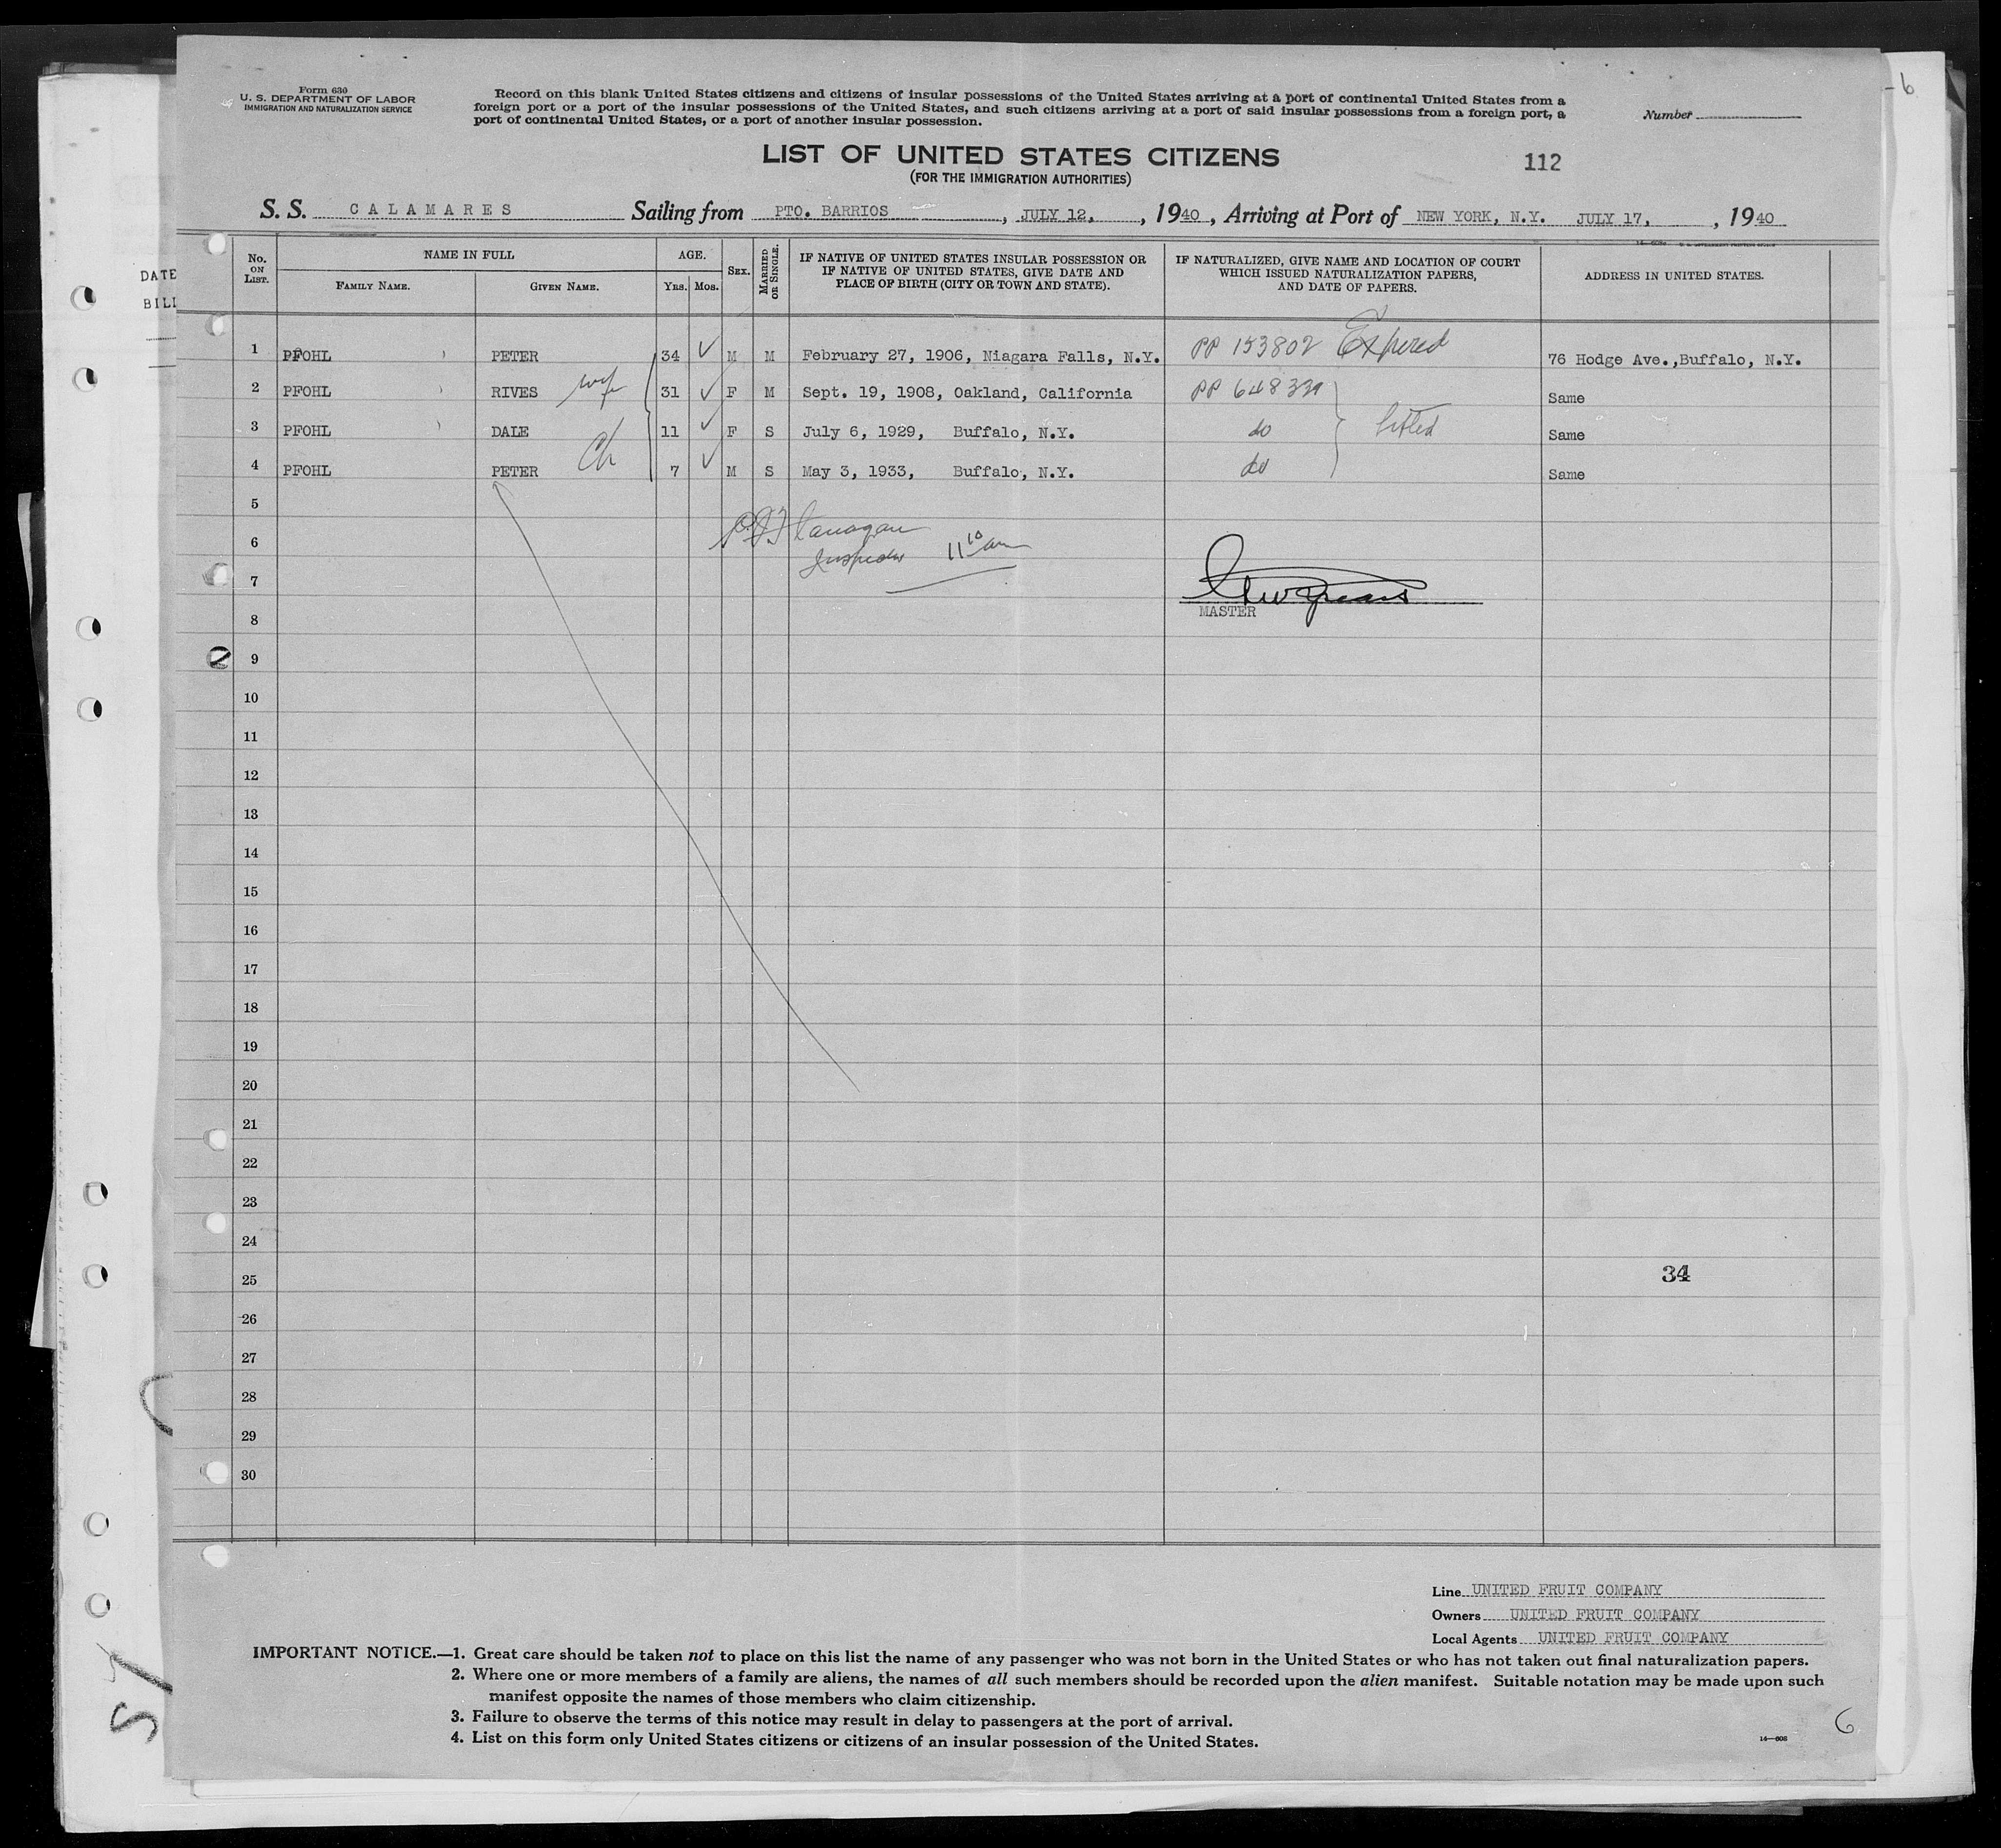 Form 630
U. S. DEPARTMENT OF LABOR
IMMIGRATION AND NATURALIZATION SERVICE
Record on this blank United States citizens and citizens of insular possessions of the United States arriving at a port of continental United States from a
foreign port or a port of the insular possessions of the United States, and such citizens arriving at a port of said insular possessions from a foreign port, a
port of continental United States, or a port of another insular possession.
Number
LIST OF UNITED STATES CITIZENS
112
(FOR THE IMMIGRATION AUTHORITIES)
S. S. CALAMARES Sailing from PTO. BARRIOS, JULY 12, , 1940, Arriving at Port of NEW YORK, N.Y. JULY 17, , 1940
DATE
BILL
No. ON LIST. NAME IN FULL AGE. SEX. MARRIED OR SINGLE. IF NATIVE OF UNITED STATES INSULAR POSSESSION OR IF NATIVE OF UNITED STATES, GIVE DATE AND PLACE OF BIRTH (CITY OR TOWN AND STATE). IF NATURALIZED, GIVE NAME AND LOCATION OF COURT WHICH ISSUED NATURALIZATION PAPERS, AND DATE OF PAPERS. ADDRESS IN UNITED STATES.
FAMILY NAME. GIVEN NAME. YRS. MOS.
1 PFOHL PETER 34 ✓ M M February 27, 1906, Niagara Falls, N.Y. PP 153802 Expired 76 Hodge Ave.,Buffalo, N.Y.
2 PFOHL RIVES wife 31 ✓ F M Sept. 19, 1908, Oakland, California PP Same
3 PFOHL DALE 11 ✓ F S July 6, 1929, Buffalo, N.Y. do lifted Same
4 PFOHL PETER Ch 7 ✓ M S May 3, 1933, Buffalo, N.Y. do Same
5
6 Flanagan
Inspector 11 10 am
7
MASTER
8
9
10
11
12
13
14
15
16
17
18
19
20
21
22
23
24
25 34
26
27
28
29
30
Line UNITED FRUIT COMPANY
Owners UNITED FRUIT COMPANY
Local Agents UNITED FRUIT COMPANY
IMPORTANT NOTICE.—1. Great care should be taken not to place on this list the name of any passenger who was not born in the United States or who has not taken out final naturalization papers.
2. Where one or more members of a family are aliens, the names of all such members should be recorded upon the alien manifest. Suitable notation may be made upon such
manifest opposite the names of those members who claim citizenship.
3. Failure to observe the terms of this notice may result in delay to passengers at the port of arrival.
4. List on this form only United States citizens or citizens of an insular possession of the United States.
6